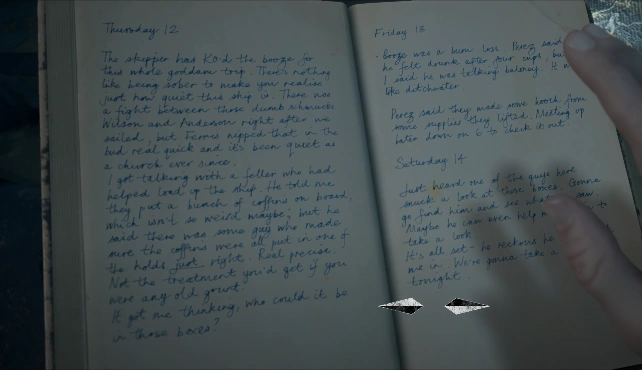 Thursday 12
The skipper has KO'd the booze for
this whole goddam trip. That's nothing
like being sober to make you realise
just how quiet this ship is. There was
a fight between those dumb schmucks
Wilson and Anderson right after we
sailed, but Ferris nipped that in the
bud real quick and it's been quiet as
a church ever since.
I got talking with a feller who had
helped load up the ship. He told me
they put a bunch of coffins on board,
which isn't so weird maybe, but he
said there was some guy who made
sure the coffins were all put in one of
the holds just right. Real precise.
Not the treatment you'd get if you
were any old grunt.
It got me thinking, who could it be
in those boxes?
Friday 13
Booze was a bum loss. Perez said
he felt drunk after four cups, but
I said he was talking baloney. It
like ditchwater
Perez said they made some hooch from
some supplies they lifted. Meeting up
later down on 6 to check it out.
Saturday 14
Just heard one of the guys here
snuck a look at those boxes. Gonna
go find him and see what saw
Maybe he can even help to
take a look
It's all set - he reckons he
me in. We're gonna take a
tonight.